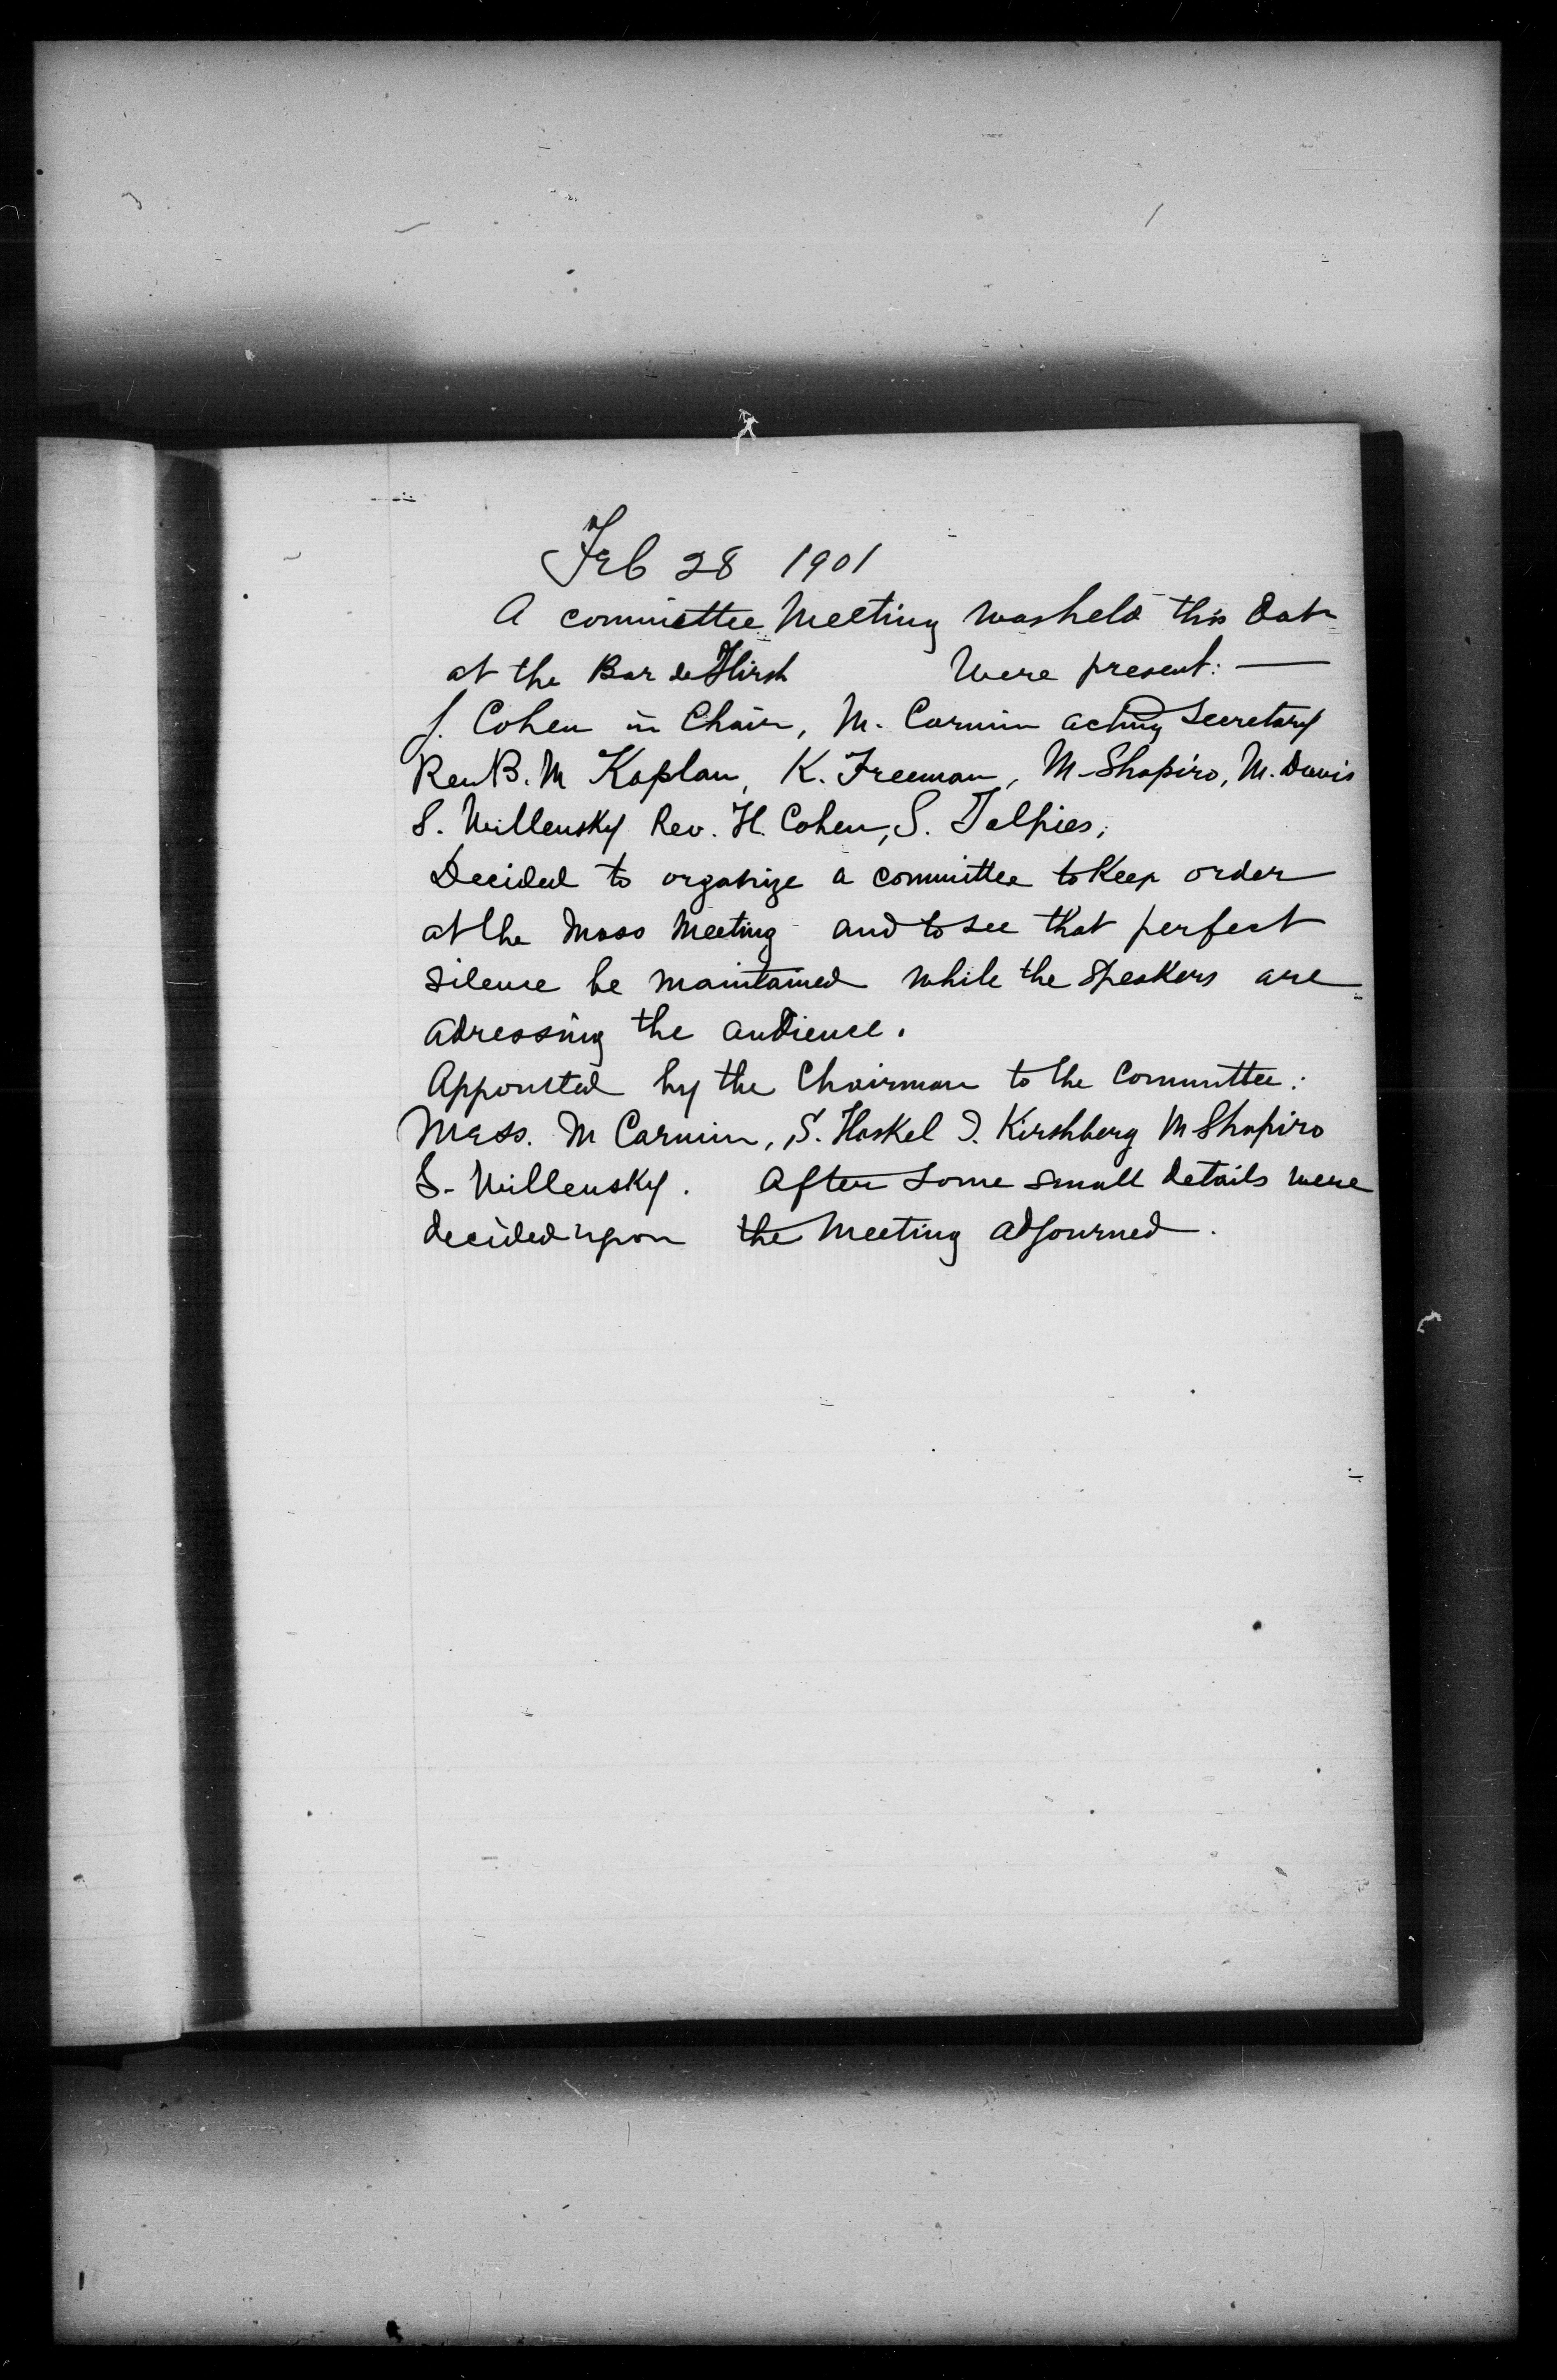 Feb 28 1901
A committee Meeting was held this date
at the Bar de Hirsh Were present: —
J. Cohen in Chair, M. Carmin acting Secretary
Rev B. M Kaplan, K. Freeman, M. Shapiro, M. Davis
S. Willensky Rev. H. Cohen, S. Talpies,
Decided to organize a committee to Keep order
at the Mass Meeting and to see that perfect
silence be maintained while the speakers are
adressing the audience.
Appointed by the Chairman to the Committee:
Mess. M Carmin, S. Haskel I. Kirshberg M Shapiro
S. Willensky. After some small details were
decided upon the Meeting adjourned.